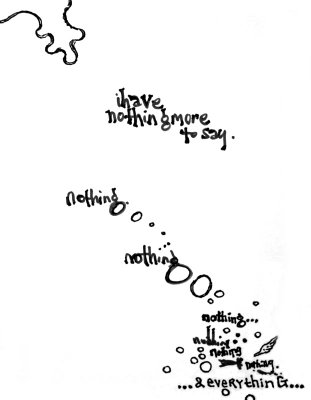 i have
nothing more
to say.
nothing.
nothing
nothing...
nothing
nothing
nothing.
...& everything...